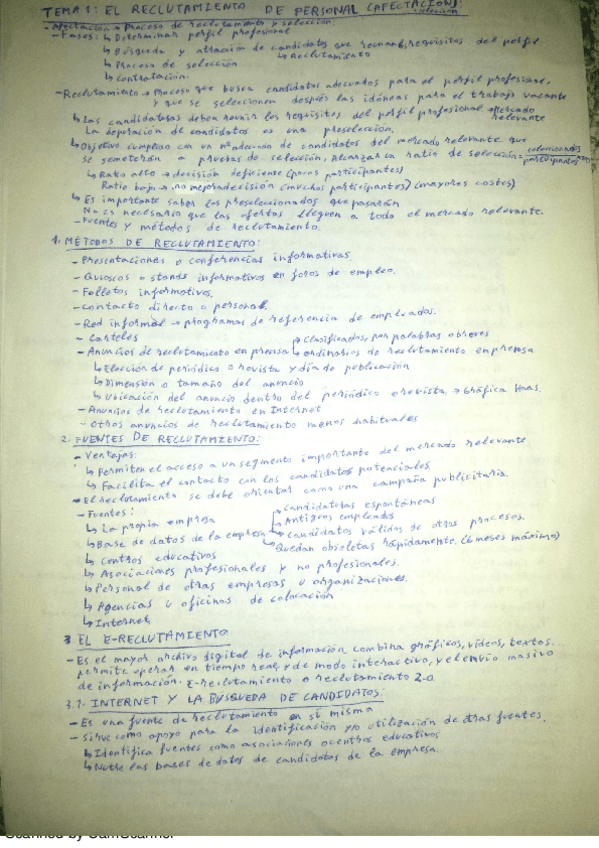 TEMA 1: EL RECLUTAMIENTO DE PERSONAL (AFECTACIÓN):
selección
- Afectación → Proceso de reclutamiento y selección.
- Fases: ↳ Determinar perfil profesional
↳ Búsqueda y atracción de candidatos que reúnan requisitos del perfil
↳ Reclutamiento
↳ Proceso de selección
↳ Contratación.
- Reclutamiento → Proceso que busca candidatos adecuados para el perfil profesional,
y que se seleccionen después los idóneas para el trabajo vacante
↳ Las candidatas deben reunir los requisitos del perfil profesional → Mercado relevante
La depuración de candidatos es una preselección.
↳ Objetivo cumplido con un nº adecuado de candidatos del mercado relevante que
se someterán a pruebas de selección. Alcanzar la ratio de selección = seleccionados / participantes
↳ Ratio alto → decisión deficiente (pocos participantes)
Ratio bajo → no mejora decisión (muchos participantes) (mayores costes)
↳ Es importante saber los preseleccionados que pasarán
No es necesario que las ofertas lleguen a todo el mercado relevante.
- Fuentes y métodos de reclutamiento.
1. MÉTODOS DE RECLUTAMIENTO:
- Presentaciones o conferencias informativas.
- Quioscos o stands informativos en foros de empleo.
- Folletos informativos.
- Contacto directo o personal.
- Red informal → programas de referencia de empleados.
- Carteles
- Anuncios de reclutamiento en prensa ↱ Clasificados, por palabras o breves
↳ ordinarios de reclutamiento en prensa
↳ Elección de periódico o revista y día de publicación
↳ Dimensión o tamaño del anuncio
↳ Ubicación del anuncio dentro del periódico o revista. → Gráfica Haas.
- Anuncios de reclutamiento en Internet
- Otros anuncios de reclutamiento menos habituales
2. FUENTES DE RECLUTAMIENTO:
- Ventajas:
↳ Permiten el acceso a un segmento importante del mercado relevante
↳ Facilita el contacto con los candidatos potenciales
- El reclutamiento se debe orientar como una campaña publicitaria.
- Fuentes:
↳ La propia empresa
↳ Base de datos de la empresa → Candidaturas espontáneas
→ Antiguos empleados
→ Candidatos válidos de otros procesos.
↳ Quedan obsoletas rápidamente. (6 meses máximo)
↳ Centros educativos
↳ Asociaciones profesionales y no profesionales.
↳ Personal de otras empresas u organizaciones.
↳ Agencias u oficinas de colocación
↳ Internet
3 EL E-RECLUTAMIENTO
- Es el mayor archivo digital de información combina gráficos, vídeos, textos.
permite operar en tiempo real, y de modo interactivo, y el envío masivo
de información. E-reclutamiento o reclutamiento 2.0
3.1. INTERNET Y LA BÚSQUEDA DE CANDIDATOS:
- Es una fuente de reclutamiento en sí misma
- Sirve como apoyo para la identificación y/o utilización de otras fuentes.
↳ Identifica fuentes como asociaciones o centros educativos
↳ Nutre las bases de datos de candidatos de la empresa.
Scanned by CamScanner